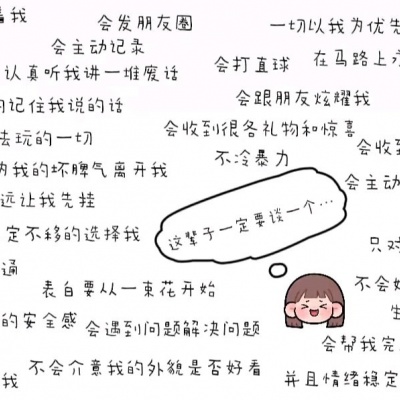 着我
会发朋友圈
一切以我为优先
会主动记录
认真听我讲一堆废话
会打直球
在马路上
的记住我说的话
会跟朋友炫耀我
去玩的一切
会收到很各礼物和惊喜
会收
内我的坏脾气离开我
不冷暴力
会主动
远让我先挂
这辈子一定要谈一个...
定不移的选择我
只对
通
不会
表白要从一束花开始
的安全感
会遇到问题解决问题
会帮我完
不会介意我的外貌是否好看
我
并且情绪稳定